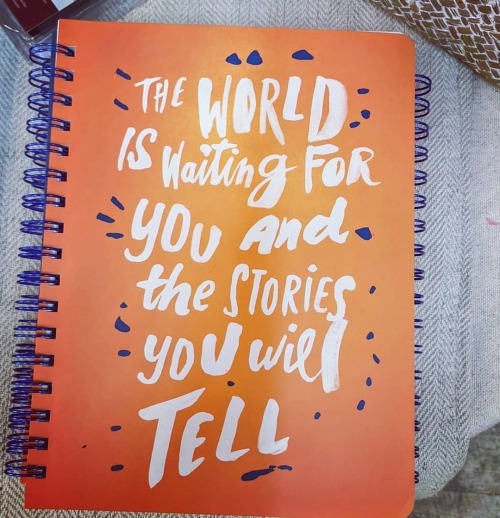 THE WORLD
IS Waiting FOR
YOU AND
the STORIES
YOU will
TELL